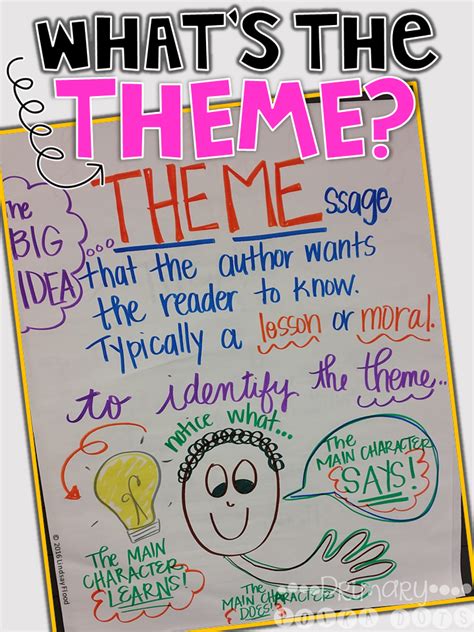 WHAT'S THE
THEME?
The
BIG
IDEA
...THEME ssage
that the author wants
the reader to know.
Typically a lesson or moral.
to identify the theme..
notice what...
The
MAIN CHARACTER
SAYS!
The MAIN
CHARACTER
LEARNS!
The
MAIN CHARACTER
DOES!
© 2016 Lindsay Flood
Primary
POLKA DOTS